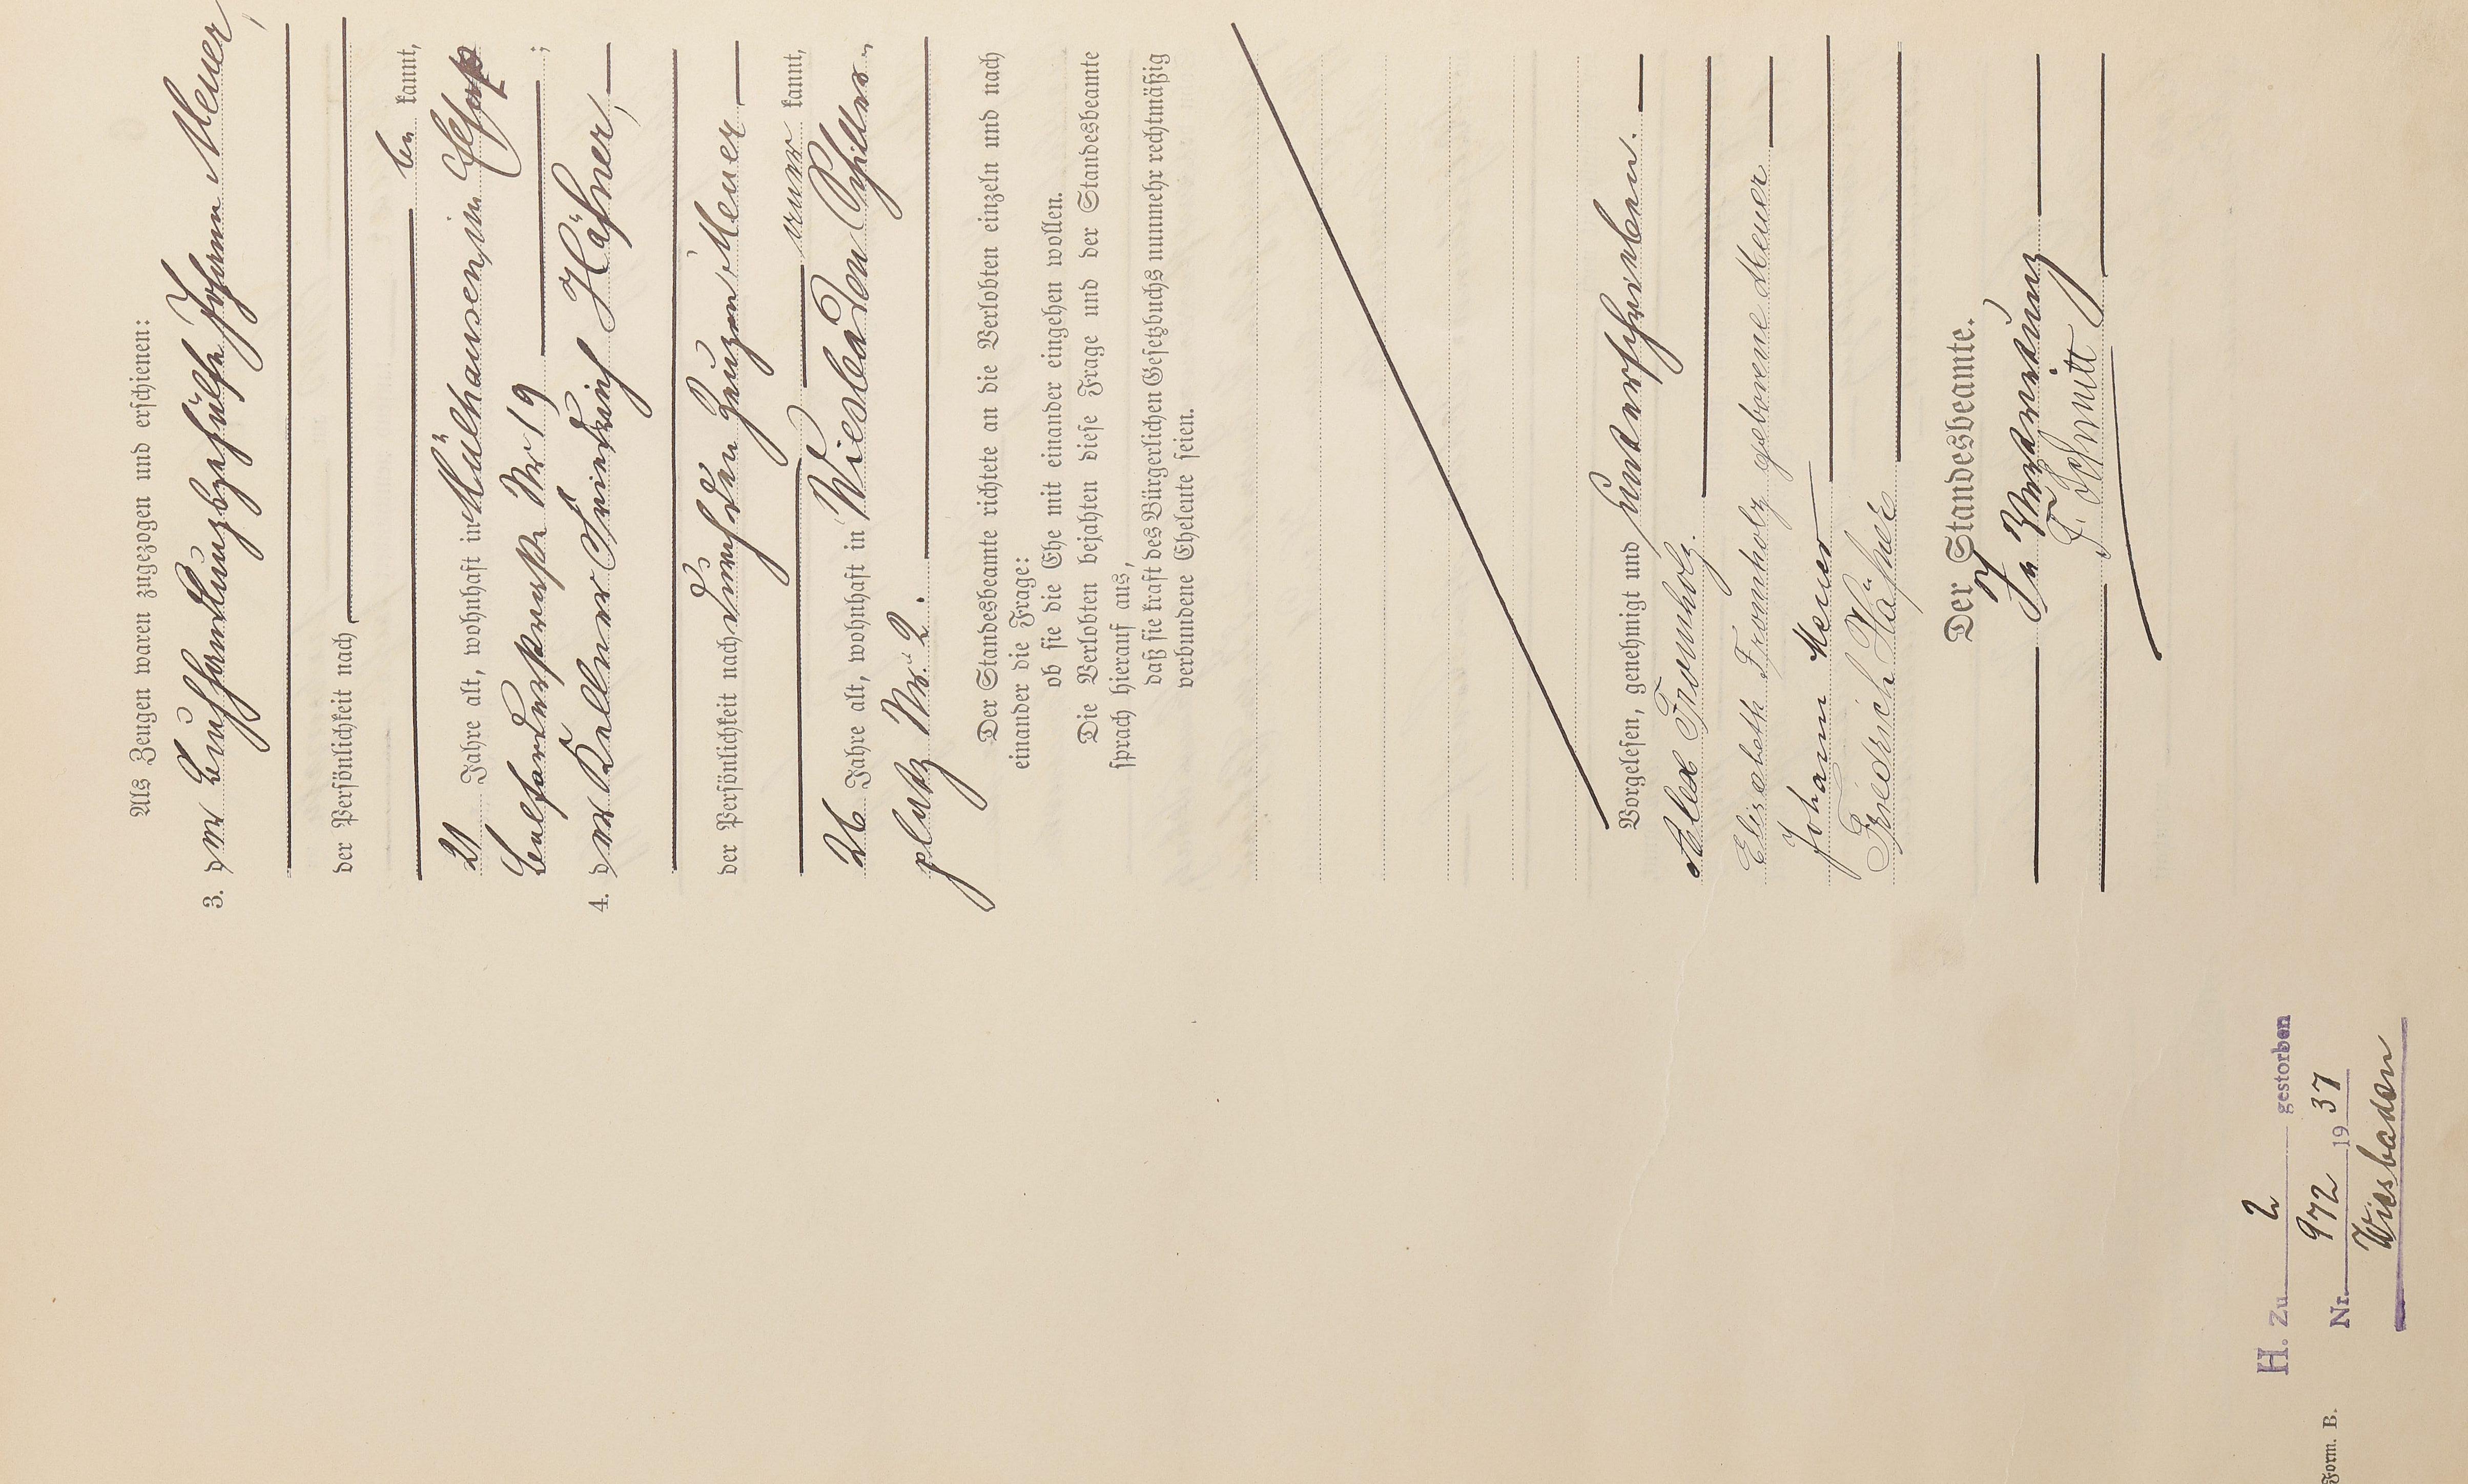 Als Zeugen waren zugezogen und erschienen:
3. der Buchhandlungsgehülfe Johann Meuer,
der Persönlichkeit nach
be kannt,
21 Jahre alt, wohnhaft in Mülhausen im Elsaß
Belforderstraße Nr 19 ;
4. der Kellner Friedrich Häfner,
der Persönlichkeit nach durch den Zeugen Meuer
aner kannt,
26 Jahre alt, wohnhaft in Wiesbaden Schiller-
platz Nr. 2.
Der Standesbeamte richtete an die Verlobten einzeln und nach
einander die Frage:
ob sie die Ehe mit einander eingehen wollen.
Die Verlobten bejahten diese Frage und der Standesbeamte
sprach hierauf aus,
daß sie kraft des Bürgerlichen Gesetzbuchs nunmehr rechtmäßig
verbundene Eheleute seien.
Vorgelesen, genehmigt und unterschrieben.
Alex Fromholz.
Elisabeth Fromholz geborene Meuer
Johann Meuer
Friedrich Häfner
Der Standesbeamte.
In Vertretung
F. Schmitt
H. Zu 2 gestorben
Nr. 972 1937
Wiesbaden
Form. B.